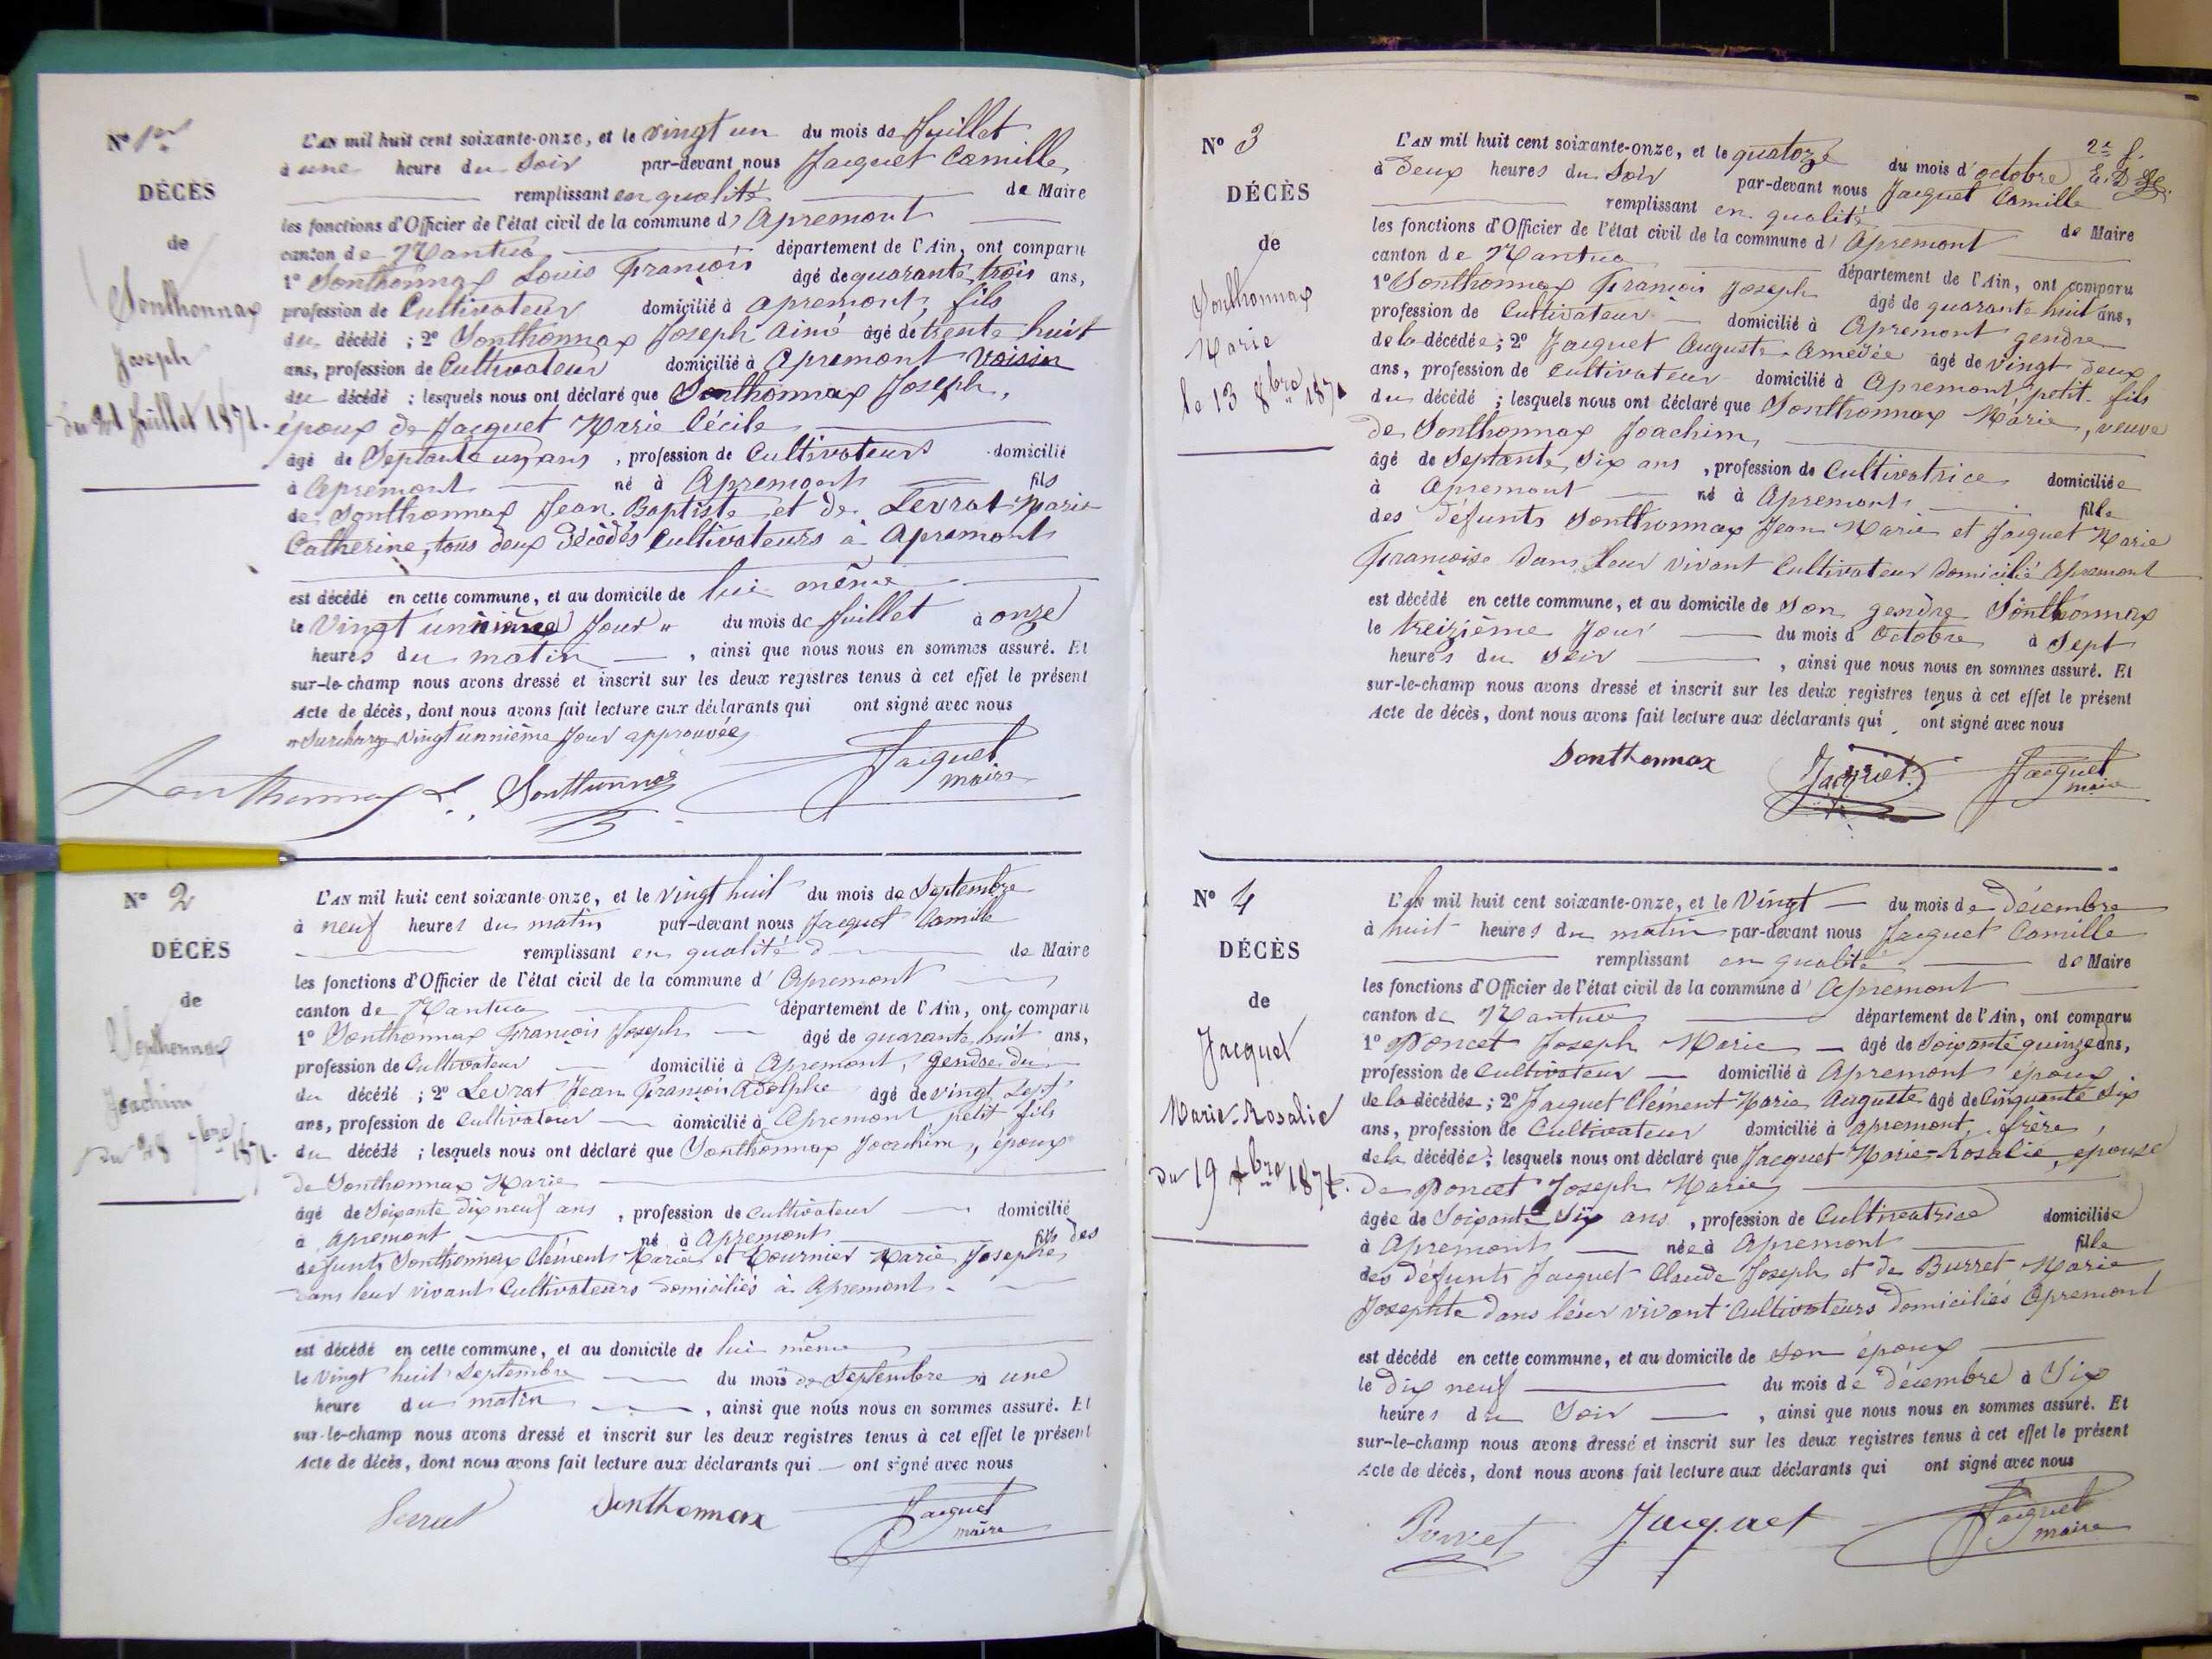 N° 1er
DÉCÈS
de
Sonthonnax
Joseph
du 21 Juillet 1871.
L'AN mil huit cent soixante-onze, et le vingt un du mois de Juillet
à une heure du Soir par-devant nous Jacquet Camille
remplissant en qualité de Maire
les fonctions d'Officier de l'état civil de la commune d' Apremont
canton de Nantua département de l'Ain, ont comparu
1° Sonthonnax Louis François âgé de quarante trois ans,
profession de Cultivateur domicilié à apremont, fils
du décédé ; 2° Sonthonnax Joseph Aimé âgé de trente huit
ans, profession de Cultivateur domicilié à Apremont voisin
du décédé ; lesquels nous ont déclaré que Sonthonnax Joseph,
époux de Jacquet Marie Cécile
âgé de Septante un ans , profession de Cultivateur domicilié
à Apremont né à Apremont fils
de Sonthonnax Jean Baptiste et de Levrat Marie
Catherine, tous deux décédés Cultivateurs à Apremont
est décédé en cette commune, et au domicile de lui même
le Vingt unième Jour du mois de Juillet à onze
heures du matin , ainsi que nous nous en sommes assuré. Et
sur-le-champ nous avons dressé et inscrit sur les deux registres tenus à cet effet le présent
Acte de décès, dont nous avons fait lecture aux déclarants qui ont signé avec nous
Surcharge Vingt unnième Jour approuvée
Sonthonnax L. Sonthonnax Jacquet
maire
N° 2
DÉCÈS
de
Sonthonnax
Joachim
du 28 7bre 1871.
L'AN mil huit cent soixante-onze, et le vingt huit du mois de Septembre
à neuf heures du matin par-devant nous Jacquet Camille
remplissant en qualité d de Maire
les fonctions d'Officier de l'état civil de la commune d' Apremont
canton de Nantua département de l'Ain, ont comparu
1° Sonthonnax François Joseph âgé de quarante huit ans,
profession de Cultivateur domicilié à Apremont, gendre du
du décédé ; 2° Levrat Jean François Adolphe âgé de vingt sept
ans, profession de Cultivateur domicilié à Apremont petit fils
du décédé ; lesquels nous ont déclaré que Sonthonnax Joachim, époux
de Sonthonnax Marie
âgé de Soixante dix neuf ans , profession de Cultivateur domicilié
à Apremont né à Apremont fils des
défunts Sonthonnax Clément Marie et Tournier Marie Josephe
dans leur vivant Cultivateurs domiciliés à Apremont
est décédé en cette commune, et au domicile de lui même
le Vingt huit Septembre du mois de Septembre à une
heure du matin , ainsi que nous nous en sommes assuré. Et
sur-le-champ nous avons dressé et inscrit sur les deux registres tenus à cet effet le présent
Acte de décès, dont nous avons fait lecture aux déclarants qui ont signé avec nous
Levrat Sonthonnax Jacquet
maire
N° 3
DÉCÈS
de
Sonthonnax
Marie
le 13 8bre 1871
L'AN mil huit cent soixante-onze, et le quatorze du mois d'octobre
à deux heures du Soir par-devant nous Jacquet Camille
remplissant en qualité de Maire
les fonctions d'Officier de l'état civil de la commune d' Apremont
canton de Nantua département de l'Ain, ont comparu
1° Sonthonnax François Joseph âgé de quarante huit ans,
profession de Cultivateur domicilié à Apremont gendre
de la décédée ; 2° Jacquet Auguste Amédée âgé de vingt deux
ans, profession de Cultivateur domicilié à Apremont, petit-fils
du décédé ; lesquels nous ont déclaré que Sonthonnax Marie, veuve
de Sonthonnax Joachim
âgé de Septante six ans , profession de Cultivatrice domiciliée
à Apremont né à Apremont fille
des défunts Sonthonnax Jean Marie et Jacquet Marie
Françoise dans leur vivant Cultivateur domicilié Apremont
est décédé en cette commune, et au domicile de son gendre Sonthonnax
le treizième Jour du mois d Octobre à Sept
heures du Soir , ainsi que nous nous en sommes assuré. Et
sur-le-champ nous avons dressé et inscrit sur les deux registres tenus à cet effet le présent
Acte de décès, dont nous avons fait lecture aux déclarants qui ont signé avec nous
Sonthonnax Jacquet Jacquet
maire
N° 4
DÉCÈS
de
Jacquet
Marie-Rosalie
du 19 xbre 1871.
L'AN mil huit cent soixante-onze, et le Vingt du mois de décembre
à huit heures du matin par-devant nous Jacquet Camille
remplissant en qualité de Maire
les fonctions d'Officier de l'état civil de la commune d' Apremont
canton de Nantua département de l'Ain, ont comparu
1° Poncet Joseph Marie âgé de Soixante quinze ans,
profession de Cultivateur domicilié à Apremont époux
de la décédée ; 2° Jacquet Clément Marie Auguste âgé de Cinquante six
ans, profession de Cultivateur domicilié à Apremont, frère,
de la décédée ; lesquels nous ont déclaré que Jacquet Marie-Rosalie, épouse
de Poncet Joseph Marie
âgée de Soixante Six ans , profession de Cultivatrice domiciliée
à Apremont née à Apremont fille
des défunts Jacquet Claude Joseph et de Burret Marie
Josephte dans leur vivant Cultivateurs domiciliés Apremont
est décédé en cette commune, et au domicile de son époux
le dix neuf du mois de décembre à Six
heures du Soir , ainsi que nous nous en sommes assuré. Et
sur-le-champ nous avons dressé et inscrit sur les deux registres tenus à cet effet le présent
Acte de décès, dont nous avons fait lecture aux déclarants qui ont signé avec nous
Poncet Jacquet Jacquet
maire